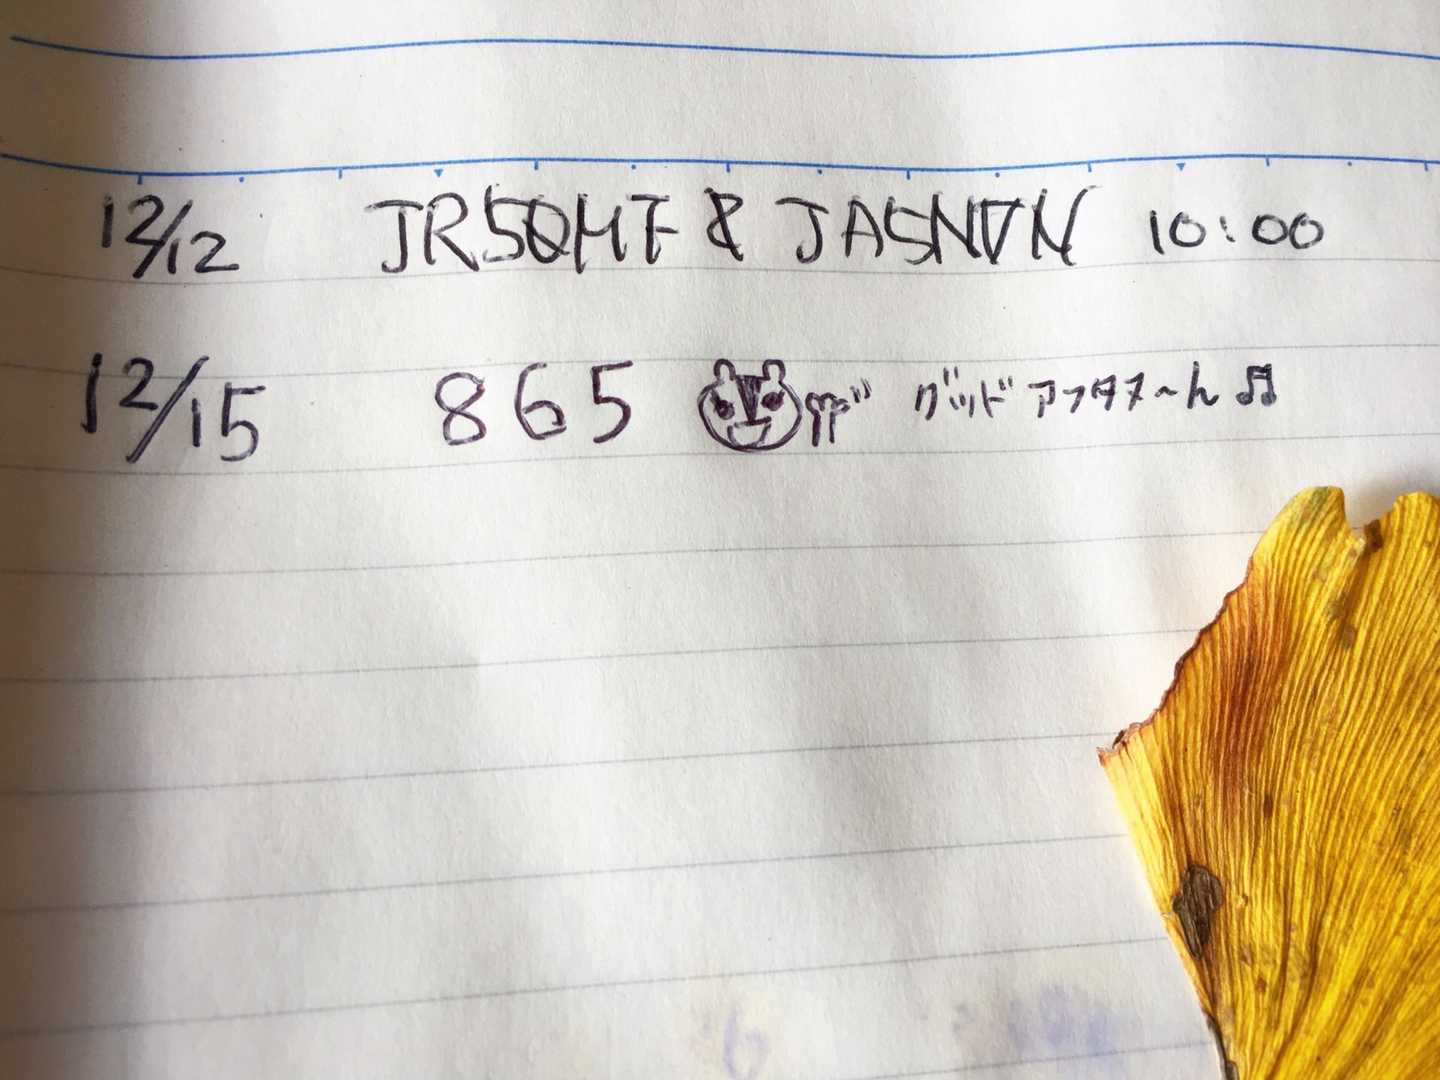 12/12 JR5QHF & JA5NVN 10:00
12/15 865 グッドアフタヌ〜ん♫